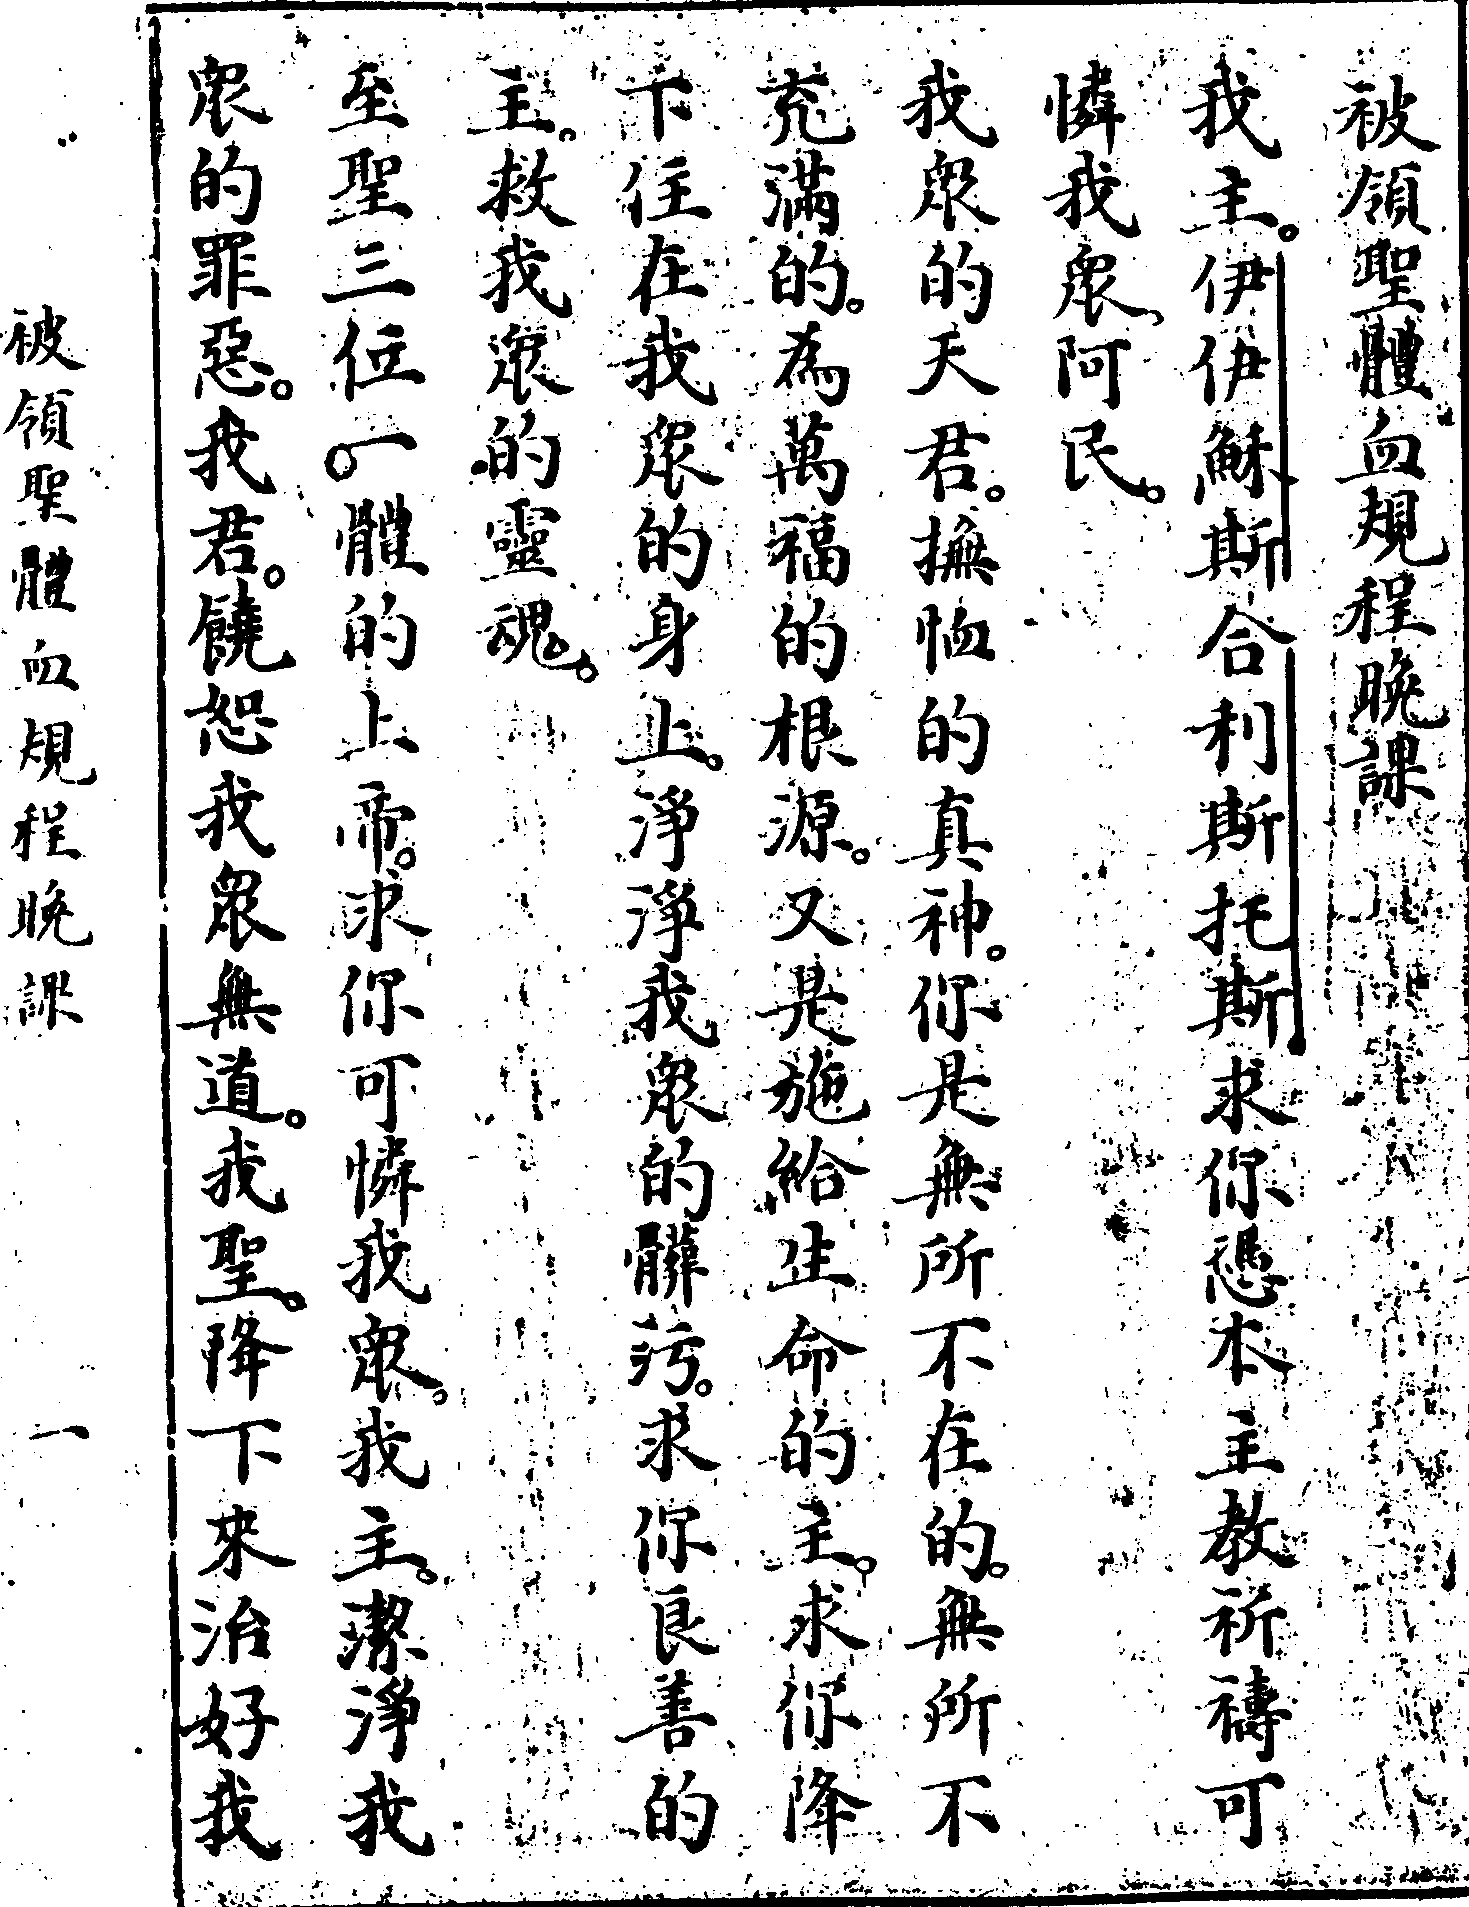 被領聖體血規程晚課
我主。伊伊穌斯合利斯托斯求你憑本主教祈禱可
憐我眾、阿民。
我眾的天君。撫恤的真神。你是無所不在的。無所不
充滿的。為萬福的根源。又是施給生命的主。求你降
下住在我眾的身上。淨淨我眾的髒污。求你良善的
主。救我眾的靈魂。
至聖三位。一體的上帝。求你可憐我眾。我主。潔淨我
眾的罪惡。我君。饒恕我眾無道。我聖。降下來治好我
被領聖體血規程晚課 一